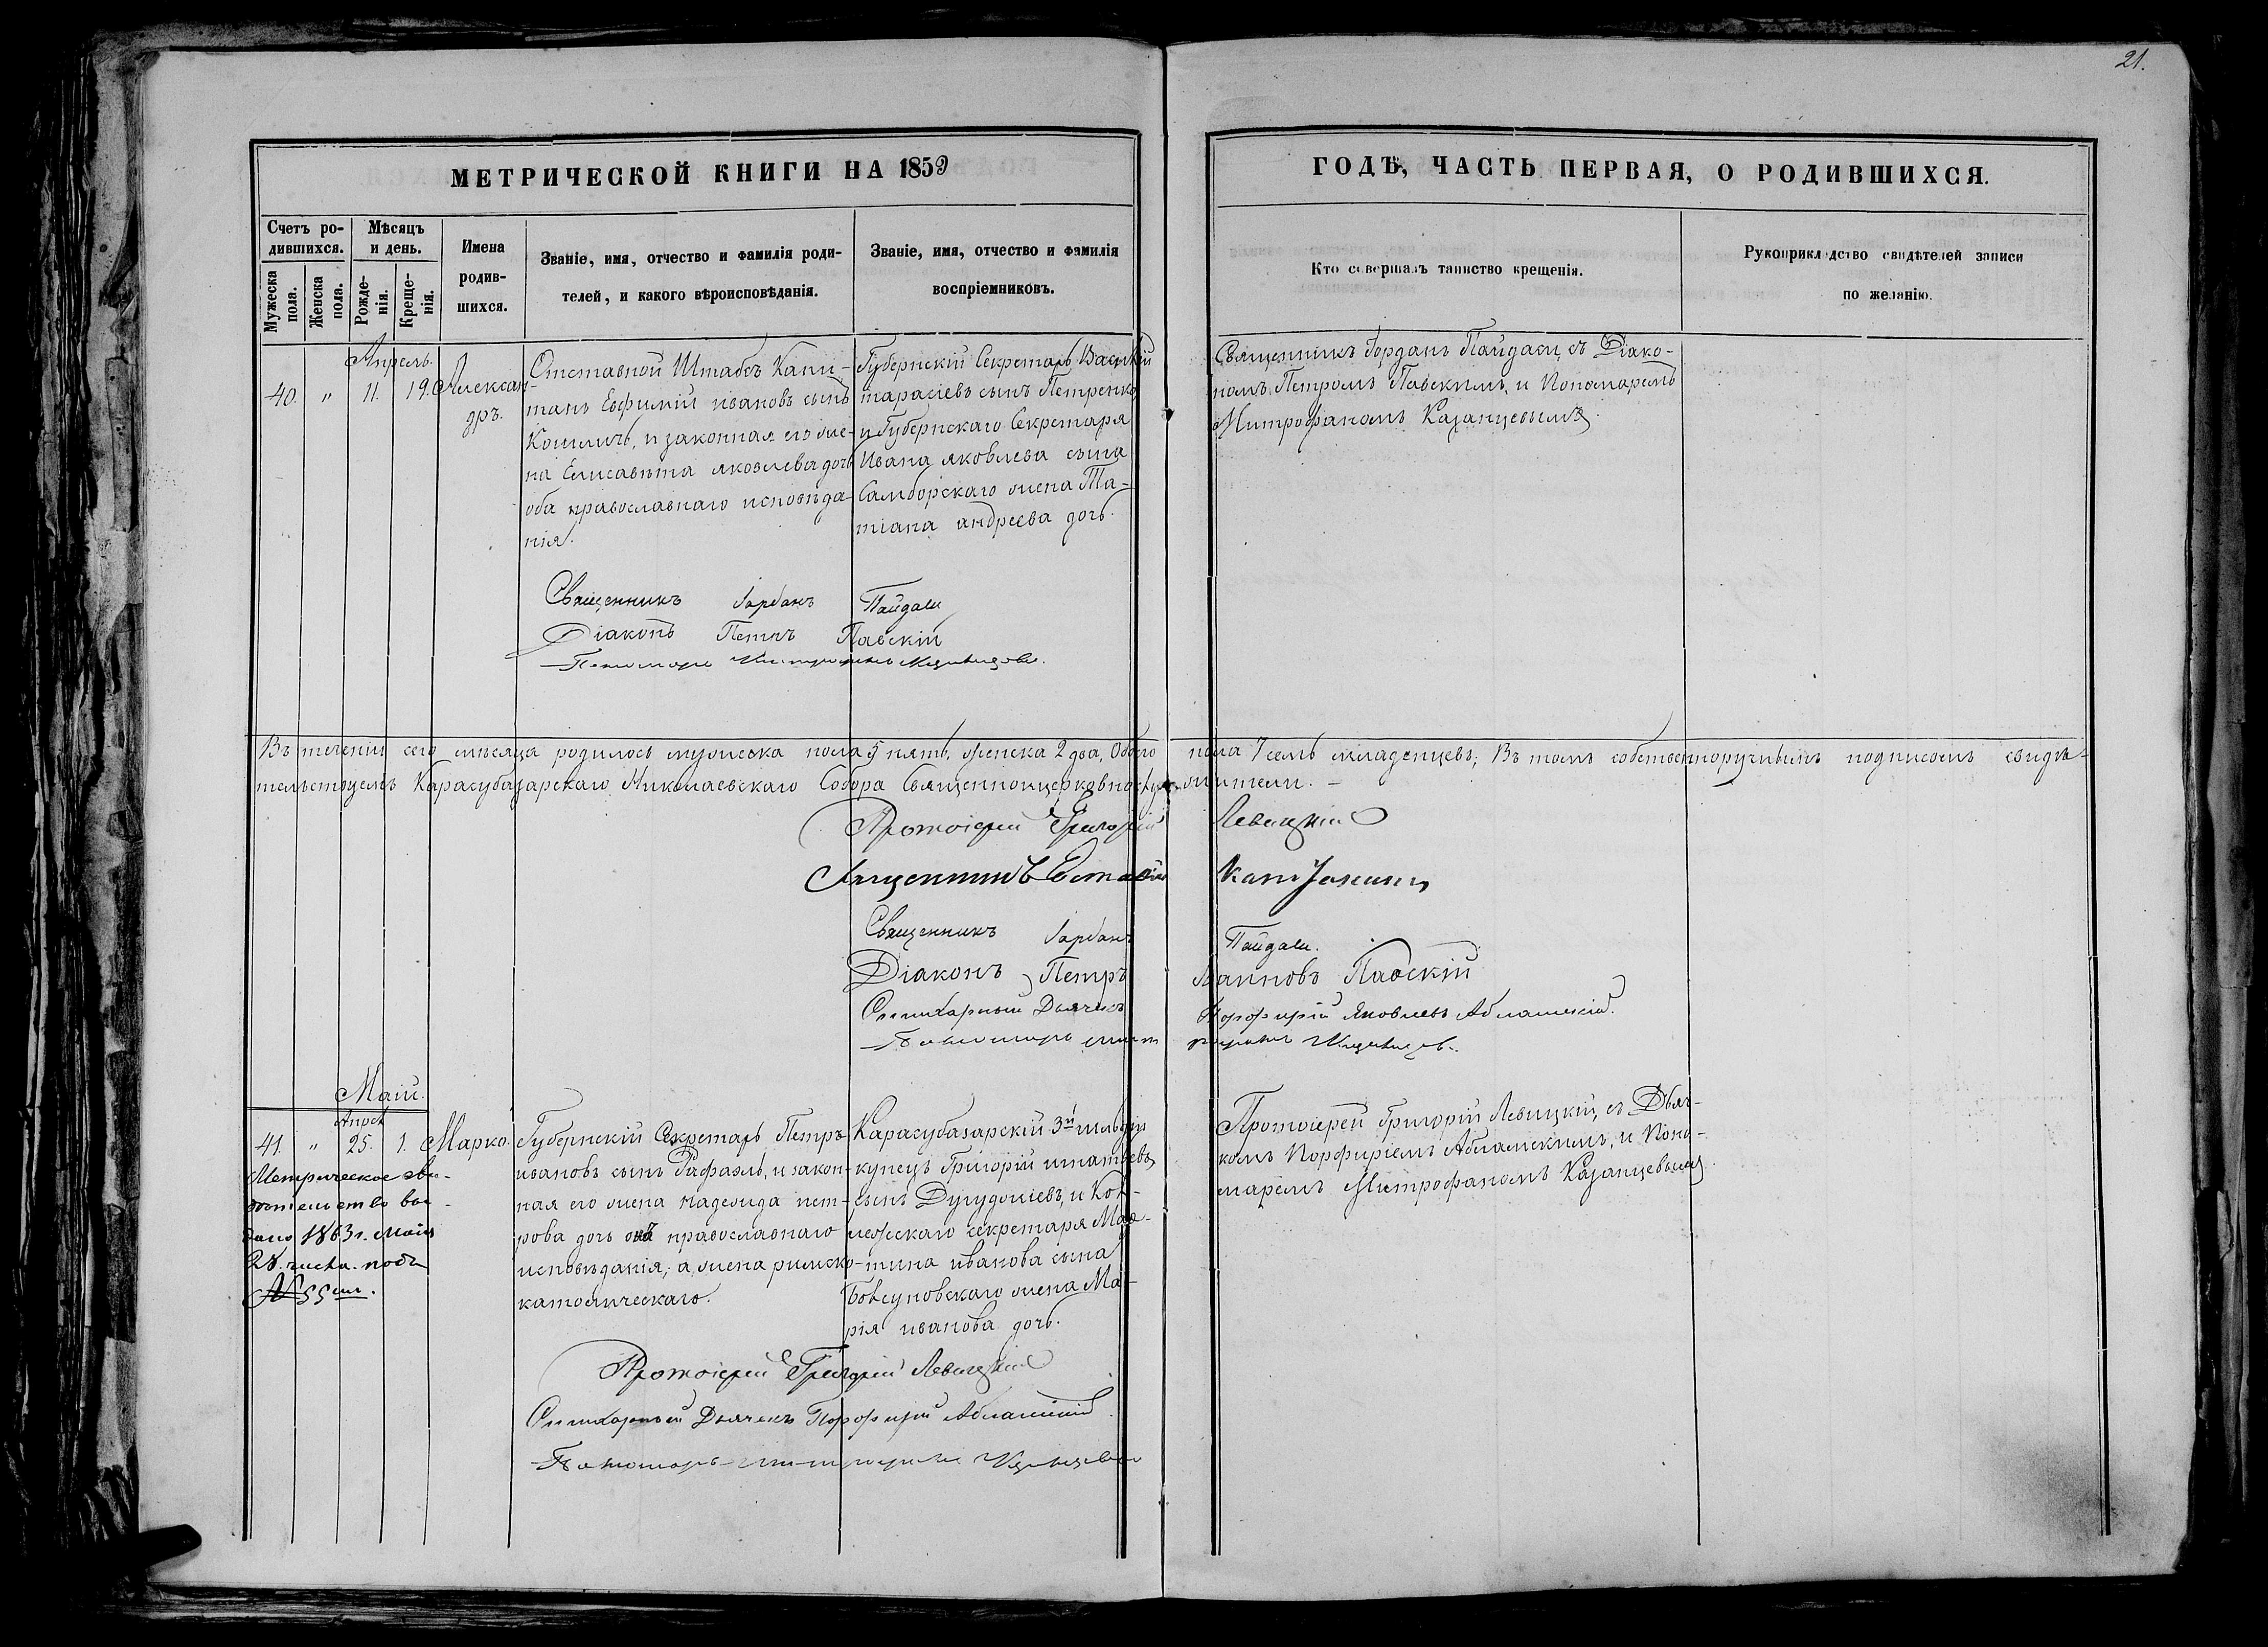 21.
МЕТРИЧЕСКОЙ КНИГИ НА 1859
ГОДЪ, ЧАСТЬ ПЕРВАЯ, О РОДИВШИХСЯ.
Счетъ ро-
дившихся.
Мужеска
пола.
Женска
пола.
Мѣсяцъ
и день.
Рожде-
нія.
Креще-
нія.
Имена
родив-
шихся.
Званіе, имя, отчество и фамилія роди-
телей, и какого вѣроисповѣданія.
Званіе, имя, отчество и фамилія
воспріемниковъ.
Кто совершалъ таинство крещенія.
Рукоприкладство свидѣтелей записи
по желанію.
Апрель.
40. " 11. 19. Алексан-
дръ.
Отставной Штабсъ Капи-
танъ Евфимій ивановъ сынъ
и законная его же-
на Елисавѣта яковлева дочь
оба православнаго исповѣда-
нія.
Губернскій Секретарь Василій
тарасіевъ сынъ Петренко
и Губернскаго Секретаря
Ивана яковлева сына
Самборскаго жена Та-
тіана андреева дочь.
Священникъ Іорданъ Пайдаси, съ Діако-
номъ Петромъ Павскимъ, и Пономаремъ
Митрофаномъ Казанцевымъ.
Священникъ Іорданъ Пайдаси
Діаконъ Петръ Павскій
Пономарь Митрофанъ Казанцевъ.
Въ теченіи сего мѣсяца родилось мужеска пола 5 пять, женска 2 два, Обоего пола 7 семь младенцевъ; Въ томъ собственноручнымъ подписомъ свидѣ-
тельствуемъ Карасубазарскаго Николаевскаго Собора Священноцерковнослужители. —
Протоіерей Григорій Левицкій
Священникъ Евстафій
Священникъ Іорданъ Пайдаси.
Діаконъ Петръ Іоанновъ Павскій
Стихарный Дьячекъ Порфирій Яковлевъ Абламскій.
Пономарь Митрофанъ Казанцевъ.
Маій.
Апрел
41. " 25. 1. Марко.
Метрическое сви-
дѣтельство вы-
дано 1863 г. Маія
28. числа. подъ
№ 55ым.
Губернскій Секретарь Петръ
ивановъ сынъ Рафаэль, и закон-
ная его жена надежда пет-
рова дочь онъ православнаго
исповѣданія, а жена римско-
католическаго.
Карасубазарскій 3й гильдіи
купецъ Григорій игнатьевъ
сынъ Дугуджіевъ, и Кол-
лежскаго секретаря Мар-
тина иванова сына
жена Ма-
рія иванова дочь.
Протоіерей Григорій Левицкій, съ Дьяч-
комъ Порфиріемъ Абламскимъ, и Поно-
маремъ Митрофаномъ Казанцевымъ.
Протоіерей Григорій Левицкій
Стихарный Дьячекъ Порфирій Абламскій.
Пономарь Митрофанъ Казанцевъ